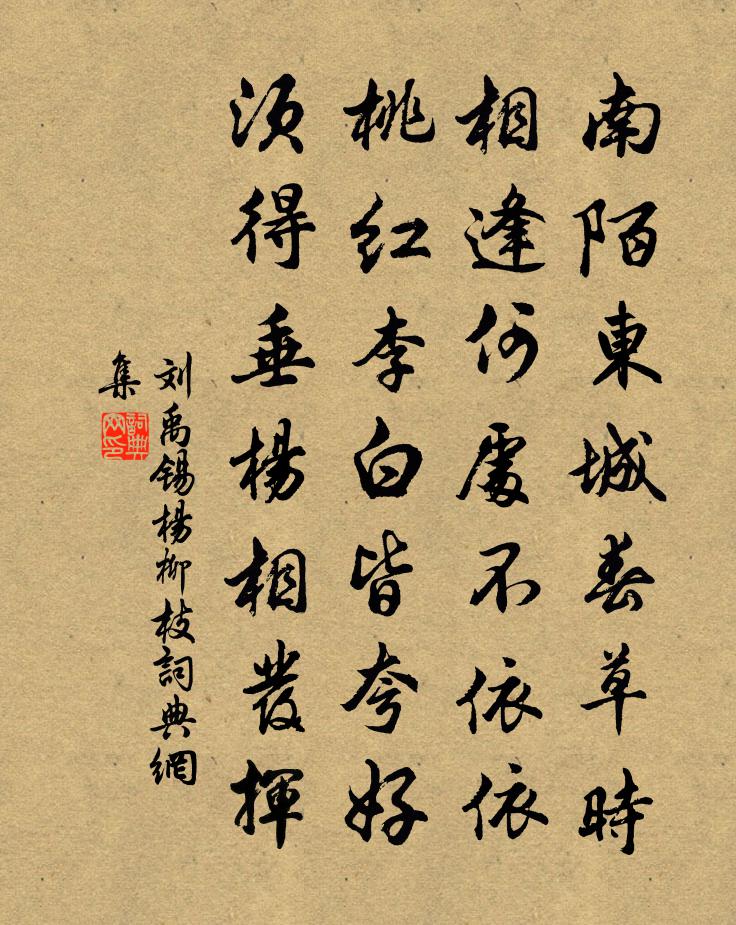 南陌東城春草時
相逢何處不依依
桃紅李白皆夸好
須得垂楊相發揮
刘禹錫楊柳枝詞典網
集
詞典
网印